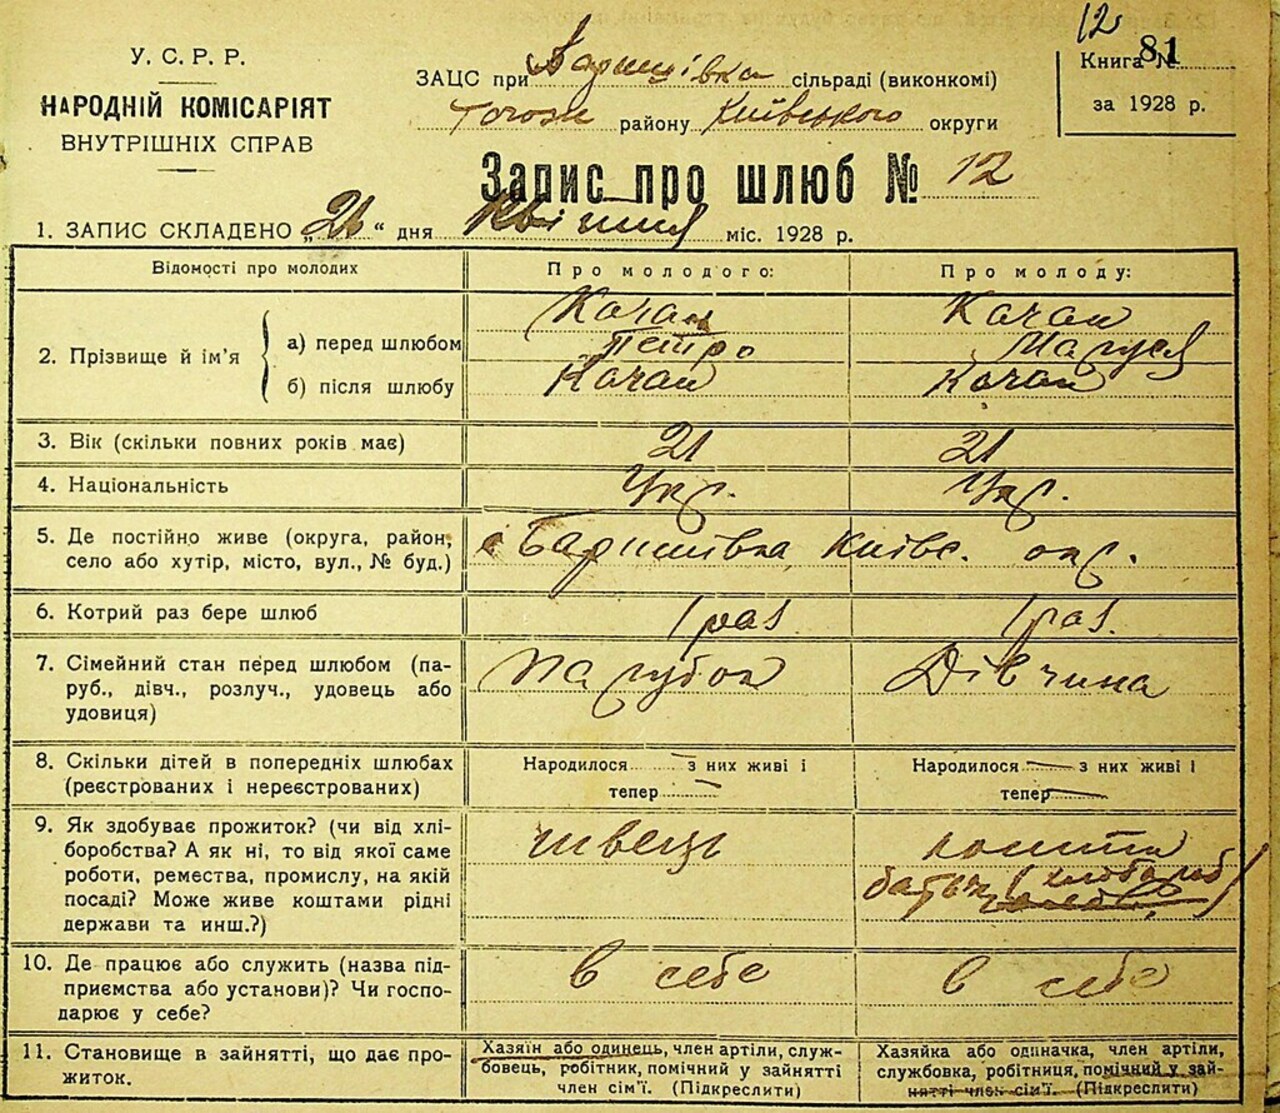 12
У. С. Р. Р.
НАРОДНІЙ КОМІСАРІЯТ
ВНУТРІШНІХ СПРАВ
ЗАЦС при Баришівка сільраді (виконкомі)
району Київського округи
Книга № 81
за 1928 р.
Запис про шлюб № 12
1. ЗАПИС СКЛАДЕНО „21“ дня Квітня міс. 1928 р.
Відомості про молодих
Про молодого:
Про молоду:
2. Прізвище й ім’я
а) перед шлюбом
Качан
Петро
Качан
Маруся
б) після шлюбу
Качан
Качан
3. Вік (скільки повних років має)
21
21
4. Національність
Укр.
Укр.
5. Де постійно живе (округа, район,
село або хутір, місто, вул., № буд.)
с Баришівка, Київс. окр.
6. Котрий раз бере шлюб
1 раз
1 раз.
7. Сімейний стан перед шлюбом (па-
руб., дівч., розлуч., удовець або
удовиця)
Парубок
Дівчина
8. Скільки дітей в попередніх шлюбах
(реєстрованих і нереєстрованих)
Народилося з них живі і
тепер
Народилося — з них живі і
тепер —
9. Як здобуває прожиток? (чи від хлі-
боробства? А як ні, то від якої саме
роботи, ремества, промислу, на якій
посаді? Може живе коштами рідні
держави та инш.?)
швець
кошти
батьк (хлібороб)
10. Де працює або служить (назва під-
приємства або установи)? Чи госпо-
дарює у себе?
в себе
в себе
11. Становище в зайнятті, що дає про-
житок.
Хазяїн або одинець, член артіли, служ-
бовець, робітник, помічний у зайнятті
член сім’ї. (Підкреслити)
Хазяйка або одиначка, член артіли,
службовка, робітниця, помічний у зай-
нятті член сім’ї. (Підкреслити)